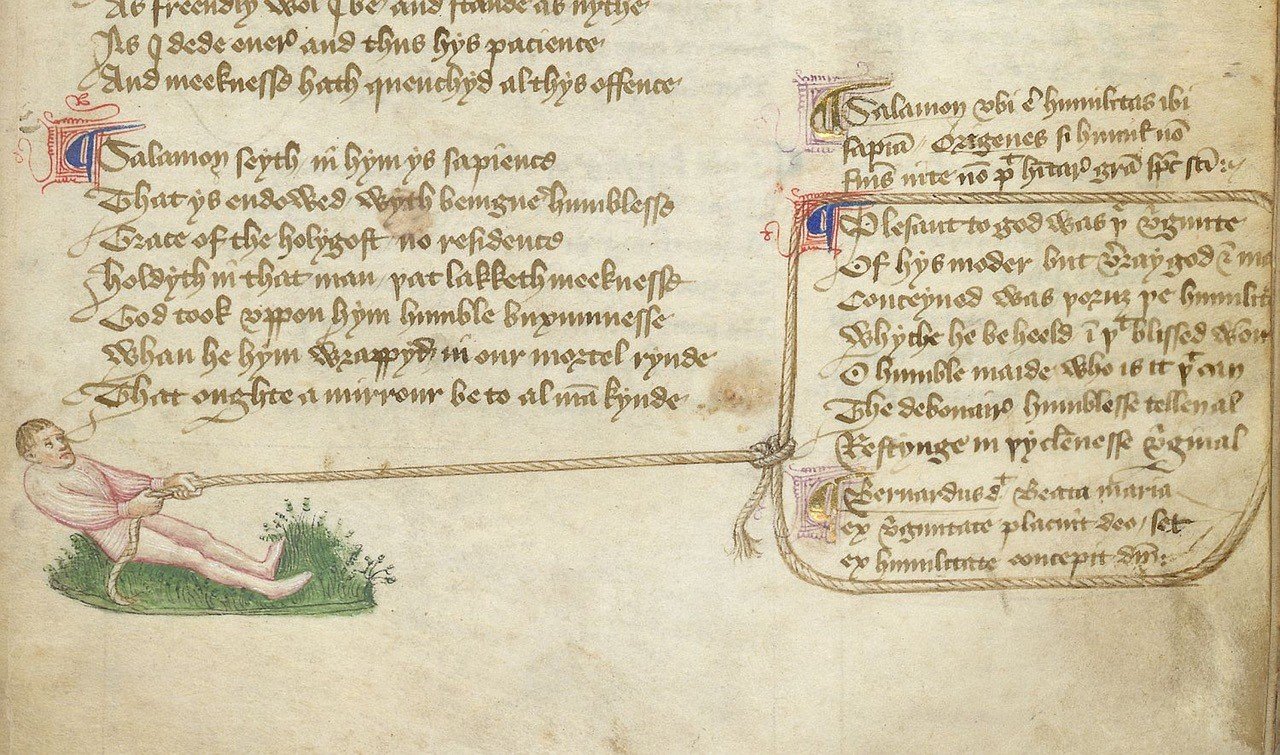 As freendly wol I be and stande as nythe
As I dede euer and thus hys pacience
And meeknesse hath quenchyd al thys offence
Salamon seyth in hym ys sapience
That ys endowed wyth benigne humblesse
Grace of the holy gost no residence
Holdyth in that man þat lakketh meeknesse
God took vppon hym humble buxumnesse
Whan he hym wrappyd in our mortel rynde
That oughte a mirrour be to al mākynde
Salamon vbi ē humilitas ibi
sapiā Origenes si humil nō
fuis nō hītar grā spc scī
Plesant to god was þe virginite
Of hys moder but verray god & ma
Conceyued was þoruz þe humilit
Whyche he beheeld ī þt blissed wom
O humble maide who is it þt can
The debonair humblesse tellen al
Restynge in þy clēnesse virginal
Bernardus d Beata maria
ex virginitate placuit deo set
ex humilitate concepit dm